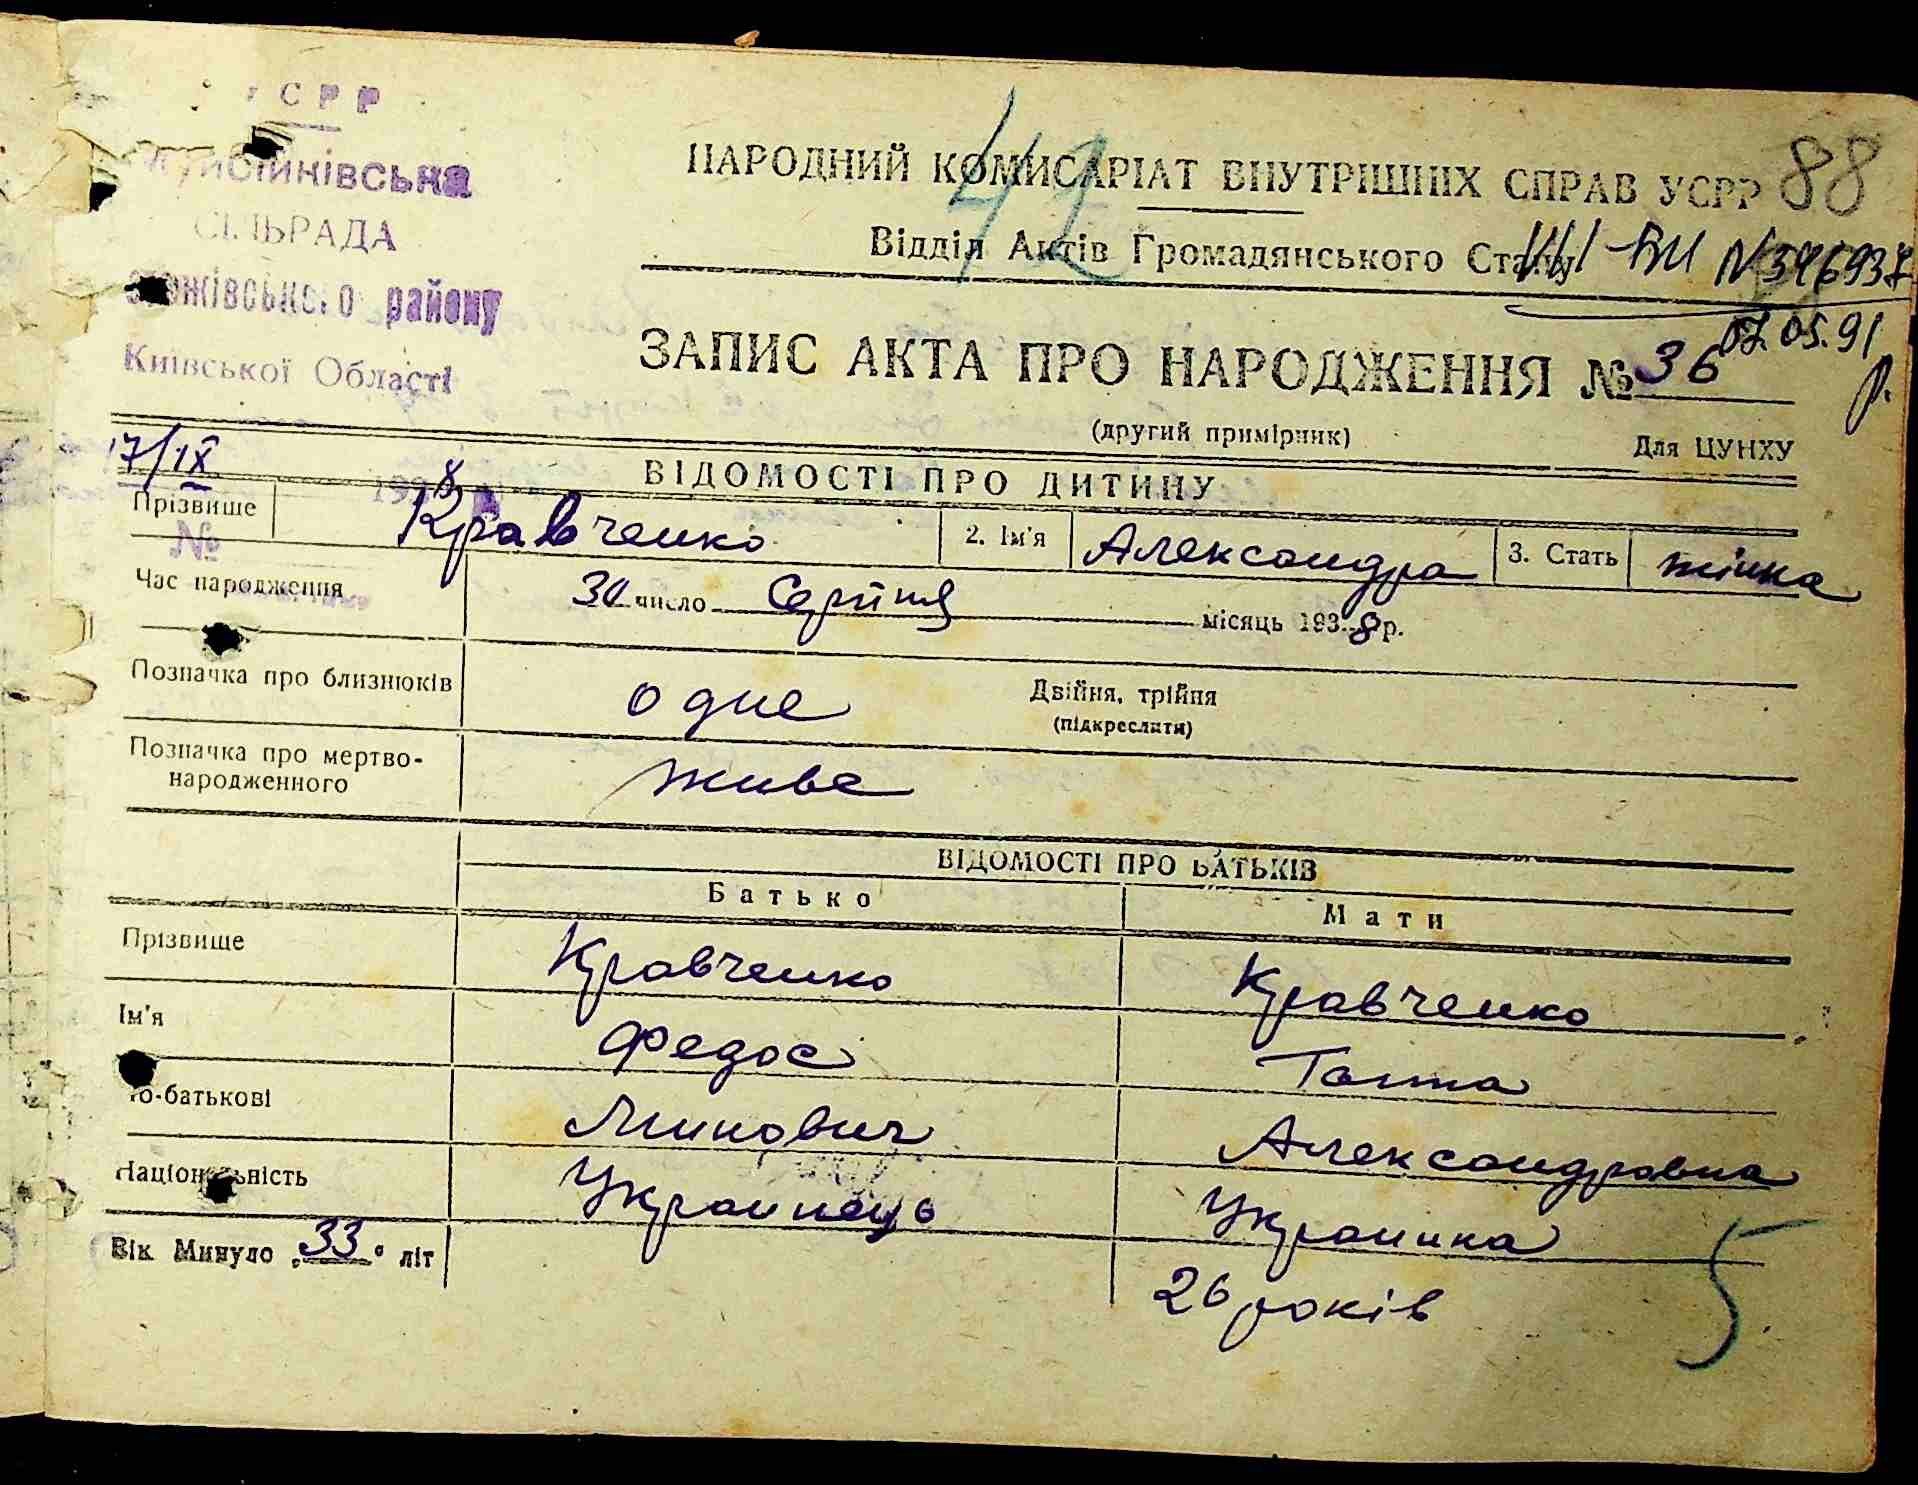 СРР
СІЛЬРАДА
району
Київської Області
17/IX
№
42
88
НАРОДНИЙ КОМИСАРІАТ ВНУТРІШНІХ СПРАВ УСРР
Відділ Актів Громадянського Стану
N 346937
07.05.91 р.
ЗАПИС АКТА ПРО НАРОДЖЕННЯ № 36
(другий примірник)
Для ЦУНХУ
ВІДОМОСТІ ПРО ДИТИНУ
Прізвище Кравченко 2. Ім'я Александра 3. Стать жінка
Час народження 30 число Серпня місяць 1938 р.
Позначка про близнюків одне Двійня, трійня
(підкреслити)
Позначка про мертво-
народженного живе
ВІДОМОСТІ ПРО БАТЬКІВ
Батько Мати
Прізвище Кравченко Кравченко
Ім'я Федос Ганна
По-батькові Минович Александровна
Національність Украинець Украинка
Вік Минуло „33" літ 26 років
5